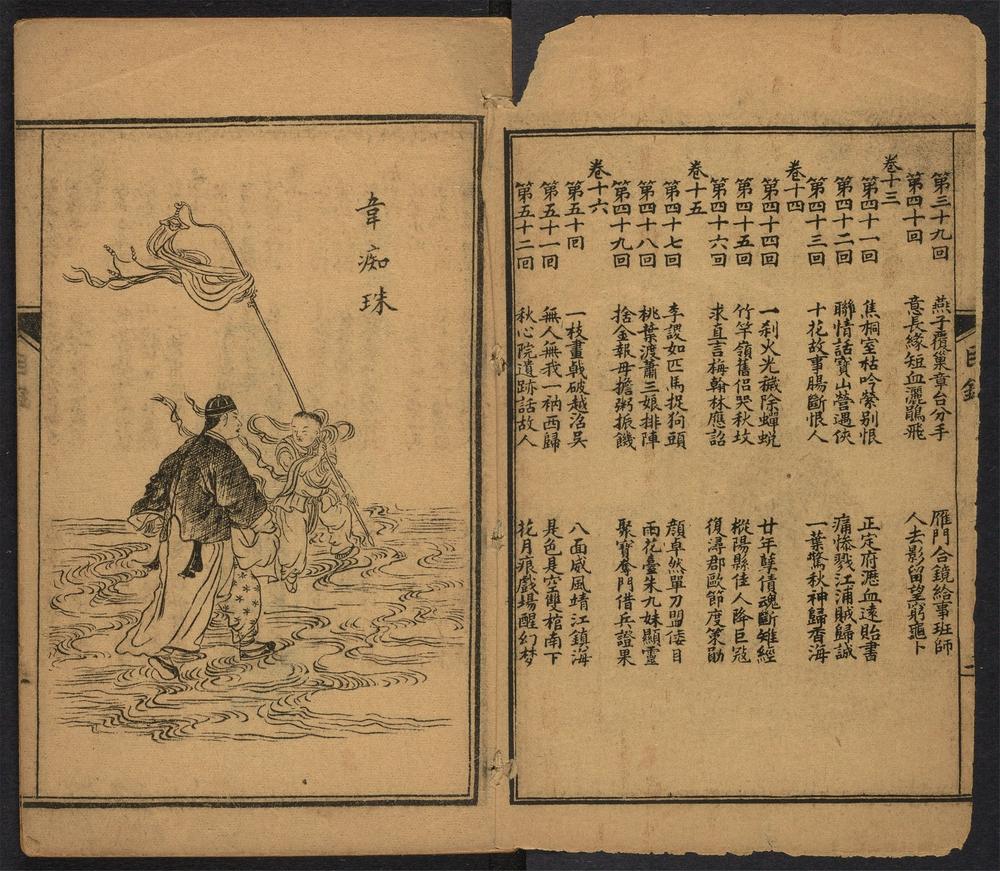 第三十九回 燕子覆巢章台分手 雁門合鏡給事班師
第四十回 意長緣短血灑鵑飛 人去影留望窮龜卜
卷十三
第四十一回 焦桐室枯吟縈別恨 正定府瀝血遠貽書
第四十二回 聯情話寶山營遇俠 痛慘戮江浦賊歸誠
第四十三回 十花故事腸斷恨人 一葉驚秋神歸香海
卷十四
第四十四回 一刹火光穢除蟬蛻 廿年孽債魂斷雉經
第四十五回 竹竿嶺舊侶哭秋墳 樅陽縣佳人降巨寇
第四十六回 求直言梅翰林應詔 復潯郡歐節度策勛
卷十五
第四十七回 李謖如匹馬捉狗頭 顏卓然單刀盟倭目
第四十八回 桃葉渡蕭三娘排陣 雨花臺朱九妹顯靈
第四十九回 捨金報母擔粥振饑 聚寶奪門借兵證果
卷十六
第五十回 一枝畫戟破越沼吳 八面威風靖江鎮海
第五十一回 無人無我一衲西歸 是色是空雙棺南下
第五十二回 秋心院遺跡話故人 花月痕戲場醒幻夢
韋痴珠